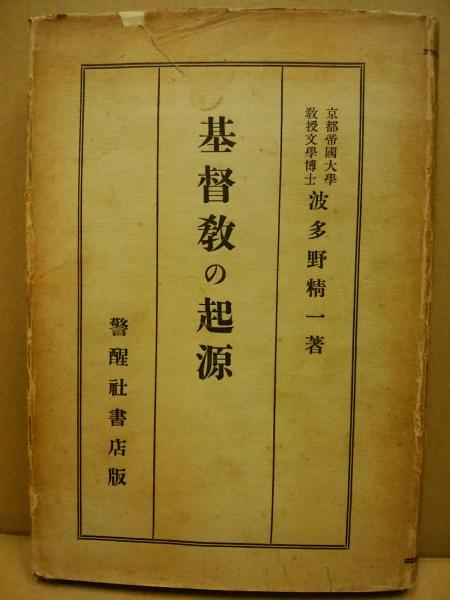 京都帝國大學
敎授文學博士
波多野精一著
基督敎の起源
警醒社書店版